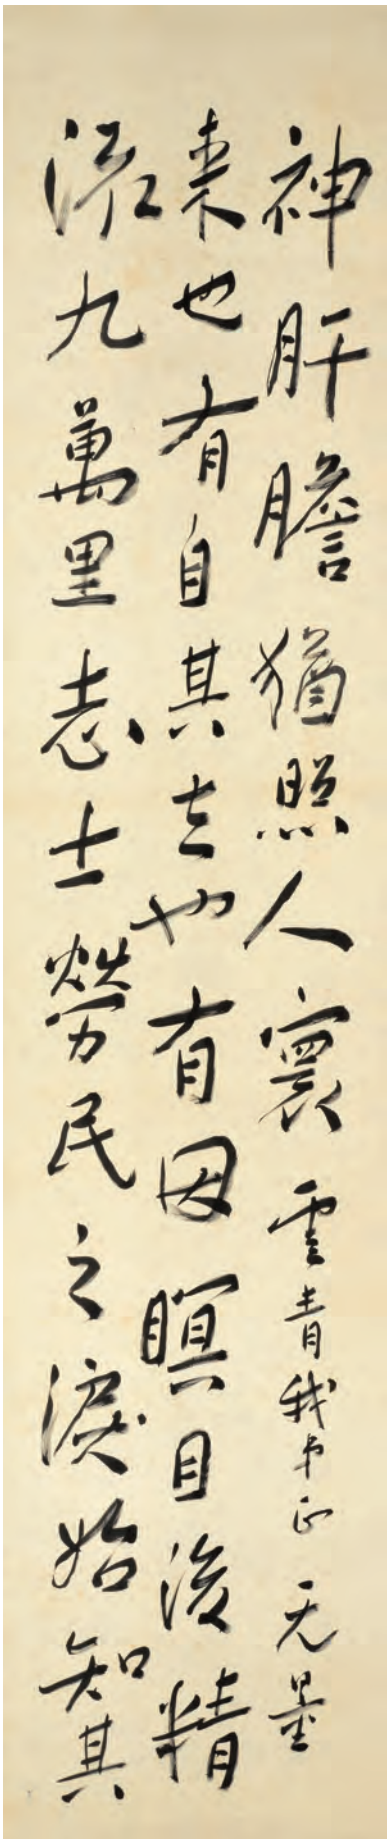 流九萬里志士勞民之淚始知其
来也有自其去也有因瞑目後精
神肝膽猶照人寰 雲青我弟正 无量